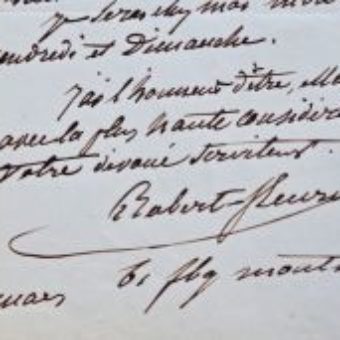 je serai chez moi
Vendredi et Dimanche.
J'ai l'honneur d'être,
avec la plus haute considéra
Votre dévoué serviteur.
Robert-Fleury
6, fbg
mars